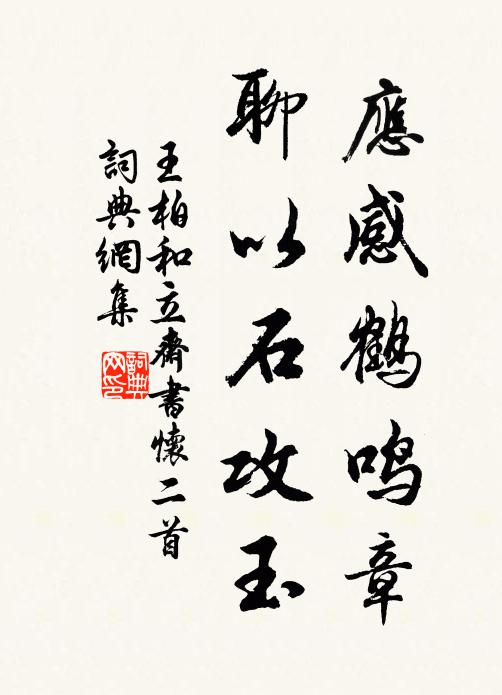 應感鶴鳴章
聊以石攻玉
王柏和立齋書懷二首
詞典網集
詞典網印